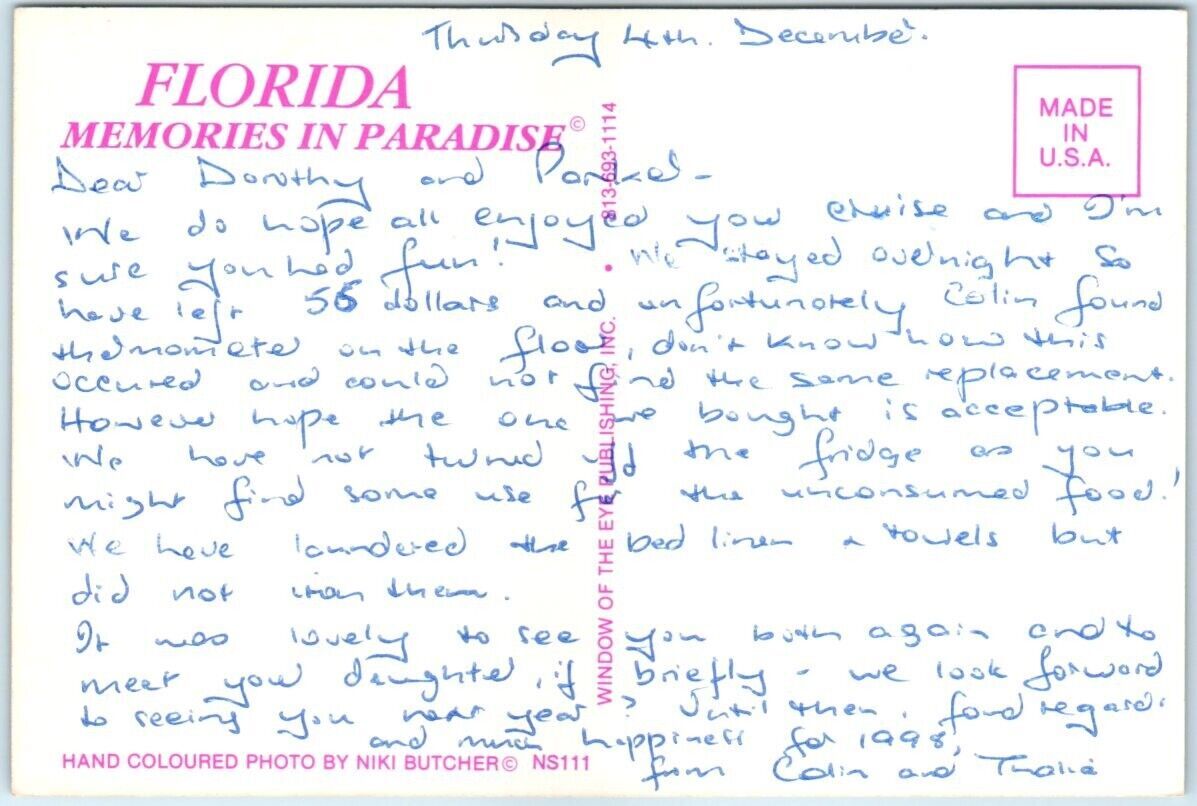 Thursday 4th. December.
FLORIDA
MEMORIES IN PARADISE©
MADE
IN
U.S.A.
Dear Dorothy and -
We do hope all enjoyed your cruise and I'm
sure you had fun! We stayed overnight so
have left 55 dollars and unfortunately Colin found
thermometer on the floor, don't know how this
occured and could not find the same replacement.
However hope the one we bought is acceptable.
We have not turned off the fridge as you
might find some use for the unconsumed food!
We have laundered the bed linen & towels but
did not iron them.
It was lovely to see you both again and to
meet your daughter, if briefly - we look forward
to seeing you next year? Until then, fond regards
and much happiness for 1998,
from Colin and Thalia
WINDOW OF THE EYE PUBLISHING, INC. • 813-693-1114
HAND COLOURED PHOTO BY NIKI BUTCHER© NS111